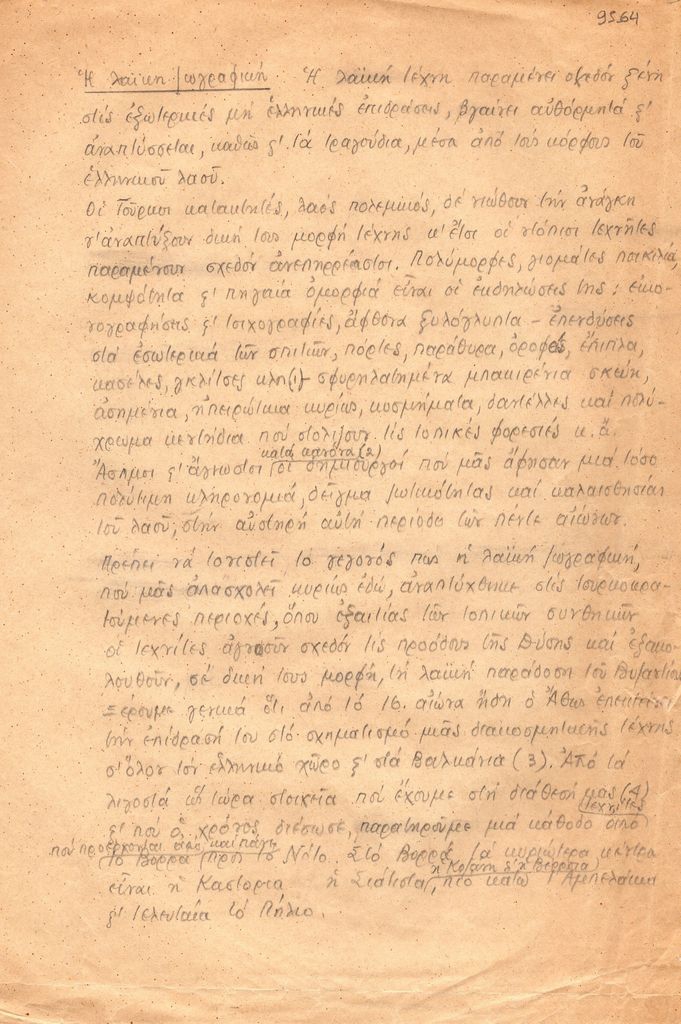 9564
Ἡ λαϊκή ζωγραφική Ἡ λαϊκή τέχνη παραμένει σχεδόν ξένη
στίς ἐξωτερικές μή ἑλληνικές ἐπιδράσεις, βγαίνει αὐθόρμητά κι'
ἀναπτύσσεται, καθώς κι' τά τραγούδια, μέσα ἀπό τούς κόρφους τοῦ
ἑλληνικοῦ λαοῦ.
Οἱ Τοῦρκοι κατακτητές, λαός πολεμικός, δέ νιώθουν τήν ἀνάγκη
ν' ἀναπτύξουν δική τους μορφή τέχνης κ' ἔτσι οἱ ντόπιοι τεχνῖτες
παραμένουν σχεδόν ἀνεπηρρέαστοι. Πολύμορφες, γιομάτες ποικιλία,
κομψότητα κι' πηγαία ὀμορφιά εἶναι οἱ ἐκδηλώσεις της: εἰκο-
νογραφήσεις κι' τοιχογραφίες, ἄφθονα ξυλόγλυπτα - ἐπενδύσεις
στά ἐσωτερικά τῶν σπιτιῶν, πόρτες, παράθυρα, ὀροφές, ἔπιπλα,
κασέλες, γκλίτσες κλπ (1) - σφυρηλατημένα μπακιρένια σκεύη,
ἀσημένια, ἠπειρώτικα κυρίως, κοσμήματα, δαντέλλες καί πολύ-
χρωμα κεντήδια πού στολίζουν τίς τοπικές φορεσιές κ.ἄ.
κατά κανόνα (2)
Ἄσημοι κι' ἄγνωστοι οἱ δημιουργοί πού μᾶς ἄφησαν μιά τόσο
πολύτιμη κληρονομιά, δεῖγμα ζωτικότητας καί καλαισθησίας
τοῦ λαοῦ, στήν αὐστηρή αὐτή περίοδο τῶν πέντε αἰώνων.
Πρέπει νά τονιστεῖ τό γεγονός πώς ἡ λαϊκή ζωγραφική,
πού μᾶς ἀπασχολεῖ κυρίως ἐδῶ, ἀναπτύχθηκε στίς τουρκοκρα-
τούμενες περιοχές, ὅπου ἐξαιτίας τῶν τοπικῶν συνθηκῶν
οἱ τεχνίτες ἀγνοοῦν σχεδόν τίς προόδους τῆς Δύσης καί ἐξακο-
λουθοῦν, σέ δική τους μορφή, τή λαϊκή παράδοση τοῦ Βυζαντίου
Ξέρουμε γενικά ὅτι ἀπό τό 16. αἰώνα ἤδη ὁ Ἄθως
τήν ἐπίδρασή του στό σχηματισμό μιᾶς διακοσμητικῆς τέχνης
σ' ὅλον τόν ἑλληνικό χῶρο κι' στά Βαλκάνια (3). Ἀπό τά
λιγοστά ὥς τώρα στοιχεῖα πού ἔχουμε στή διάθεσή μας (4)
τεχνίτες
κι' πού ὁ χρόνος διέσωσε, παρατηροῦμε μιά κάθοδο ἀπό
πού προέρχονται ἀπό, καί πάνε
τό Βορρᾶ πρός τό Νότο. Στό Βορρᾶ τά κυριώτερα κέντρα
ἡ Κοζάνη κι' ἡ Βέρροια
εἶναι ἡ Καστοριά ἡ Σιάτιστα, πιό κάτω τ' Ἀμπελάκια
κι' τελευταῖα τό Πήλιο.